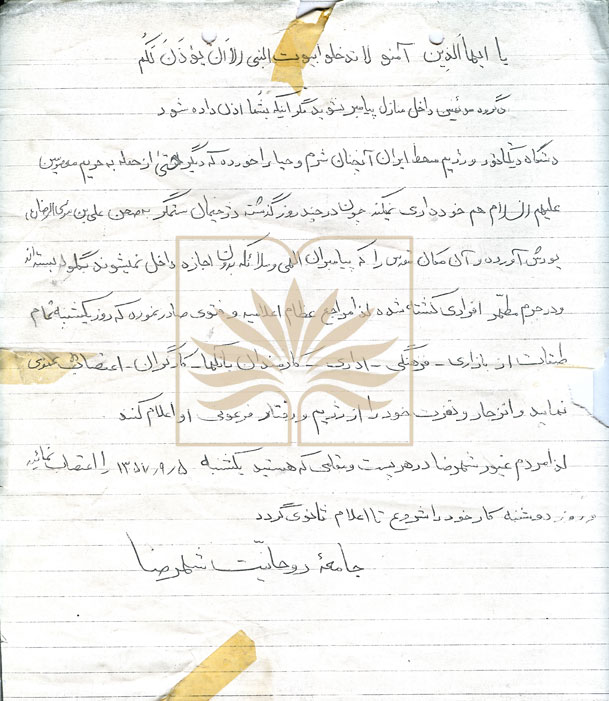 یا ایها الَّذین آمنو لا تدخلوا بیوت النبی الا اَن یؤذَنَ لَکُم
داخل منازل پیامبر نشوید مگر آنکه بشما اذن داده شود
دستگاه دیکتاتور و رژیم منحط ایران آنچنان شرم و حیا را خورده که دیگر حتی از حمله به حریم معصومین
علیهم السلام هم خودداری نمیکند چون در چند روز گذشته دژخیمان ستمگر به صحن علی بن موسی الرضا
یورش آورده و آن مکان مقدس را که پیامبران الهی و ملائکه بدون اجازه داخل نمیشوند بگلوله بسته‌اند
و در حرم مطهر افرادی کشته شده لذا مراجع عظام اعلامیه و فتوی صادر نموده که روز یکشنبه تمام
طبقات از بازاری - فرهنگی - اداری - کارمندان بانکها - کارگران - اعتصاب عمومی
نمایند و انزجار و نفرت خود را از رژیم و رفتار فرعونی او اعلام کنند
لذا مردم غیور شهرضا در هر پست و مقامی که هستید یکشنبه ۱۳۵۷/۹/۵ را اعتصاب نمائید
و روز دوشنبه کار خود را شروع تا اعلام ثانوی گردد
جامعهٔ روحانیّت شهرضا